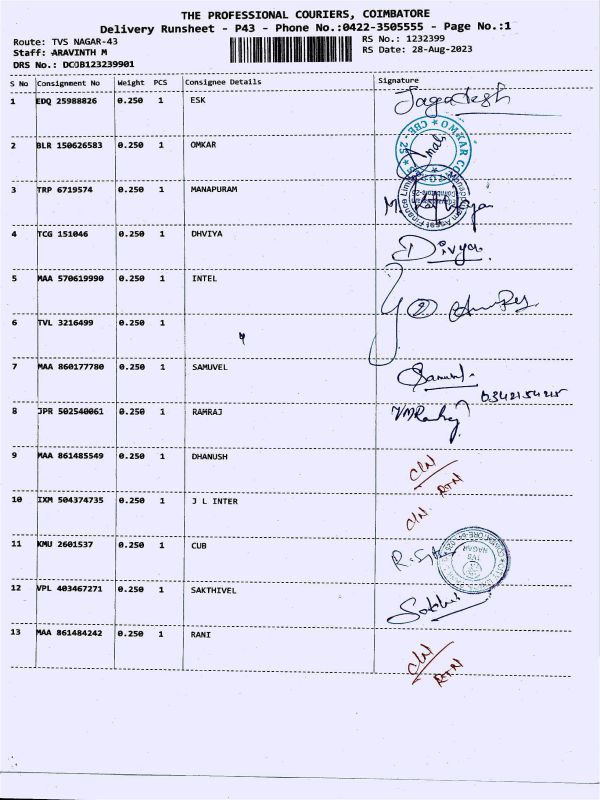 THE PROFESSIONAL COURIERS, COIMBATORE
Delivery Runsheet - P43 - Phone No.:0422-3505555 - Page No.:1
Route: TVS NAGAR-43 RS No.: 1232399
Staff: ARAVINTH M RS Date: 28-Aug-2023
DRS No.: DCOB123239901
S No Consignment No Weight PCS Consignee Details Signature
1 EDQ 25988826 0.250 1 ESK Jagadesh
2 BLR 150626583 0.250 1 OMKAR
3 TRP 6719574 0.250 1 MANAPURAM
4 TCG 151046 0.250 1 DHVIYA Divya
5 MAA 570619990 0.250 1 INTEL
6 TVL 3216499 0.250 1
7 MAA 860177780 0.250 1 SAMUVEL
8 JPR 502540061 0.250 1 RAMRAJ
9 MAA 861485549 0.250 1 DHANUSH C/N RTN
10 IXM 504374735 0.250 1 J L INTER C/N
11 KMU 2601537 0.250 1 CUB
12 VPL 403467271 0.250 1 SAKTHIVEL
13 MAA 861484242 0.250 1 RANI C/N RTN